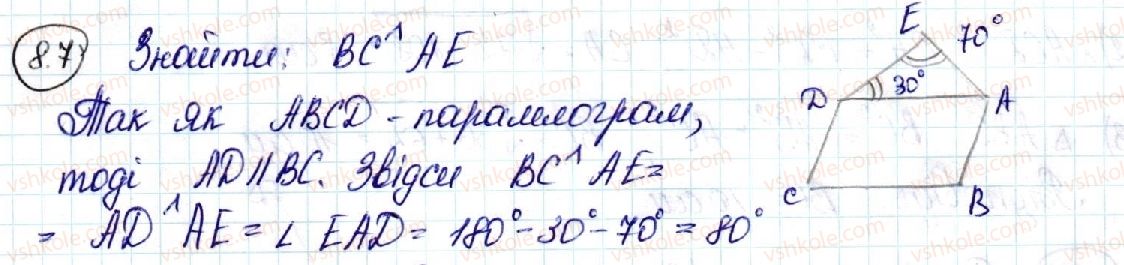 8.7) Знайти: BC^AE
Так як ABCD - паралелограм,
тоді AD||BC. Звідси BC^AE=
= AD^AE = ∠ EAD = 180° - 30° - 70° = 80°
E 70°
D 30° A
C B
vshkole.com